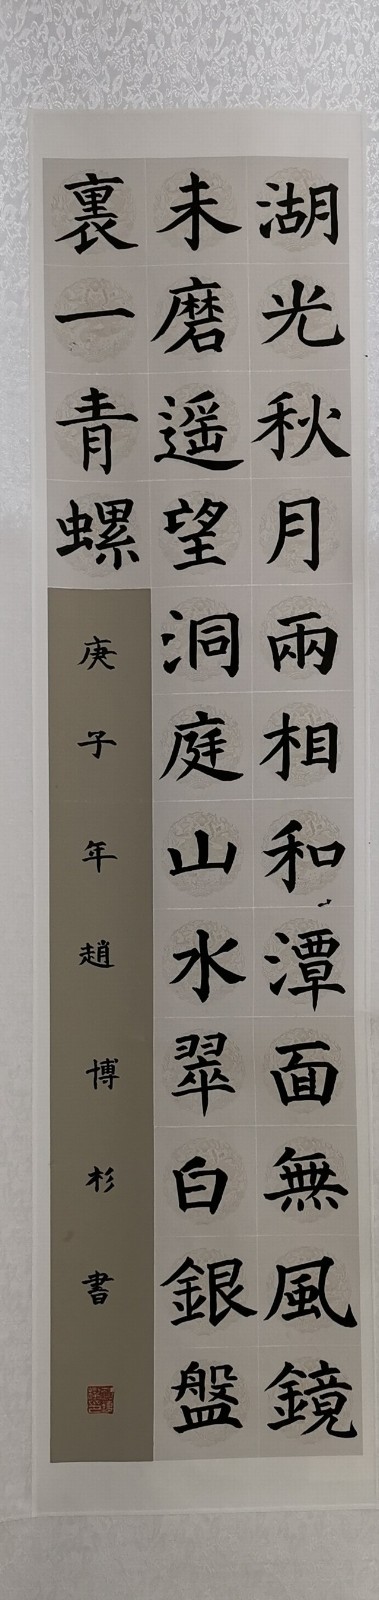 湖光秋月兩相和潭面無風鏡
未磨遥望洞庭山水翠白銀盤
裏一青螺
庚子年趙博杉書